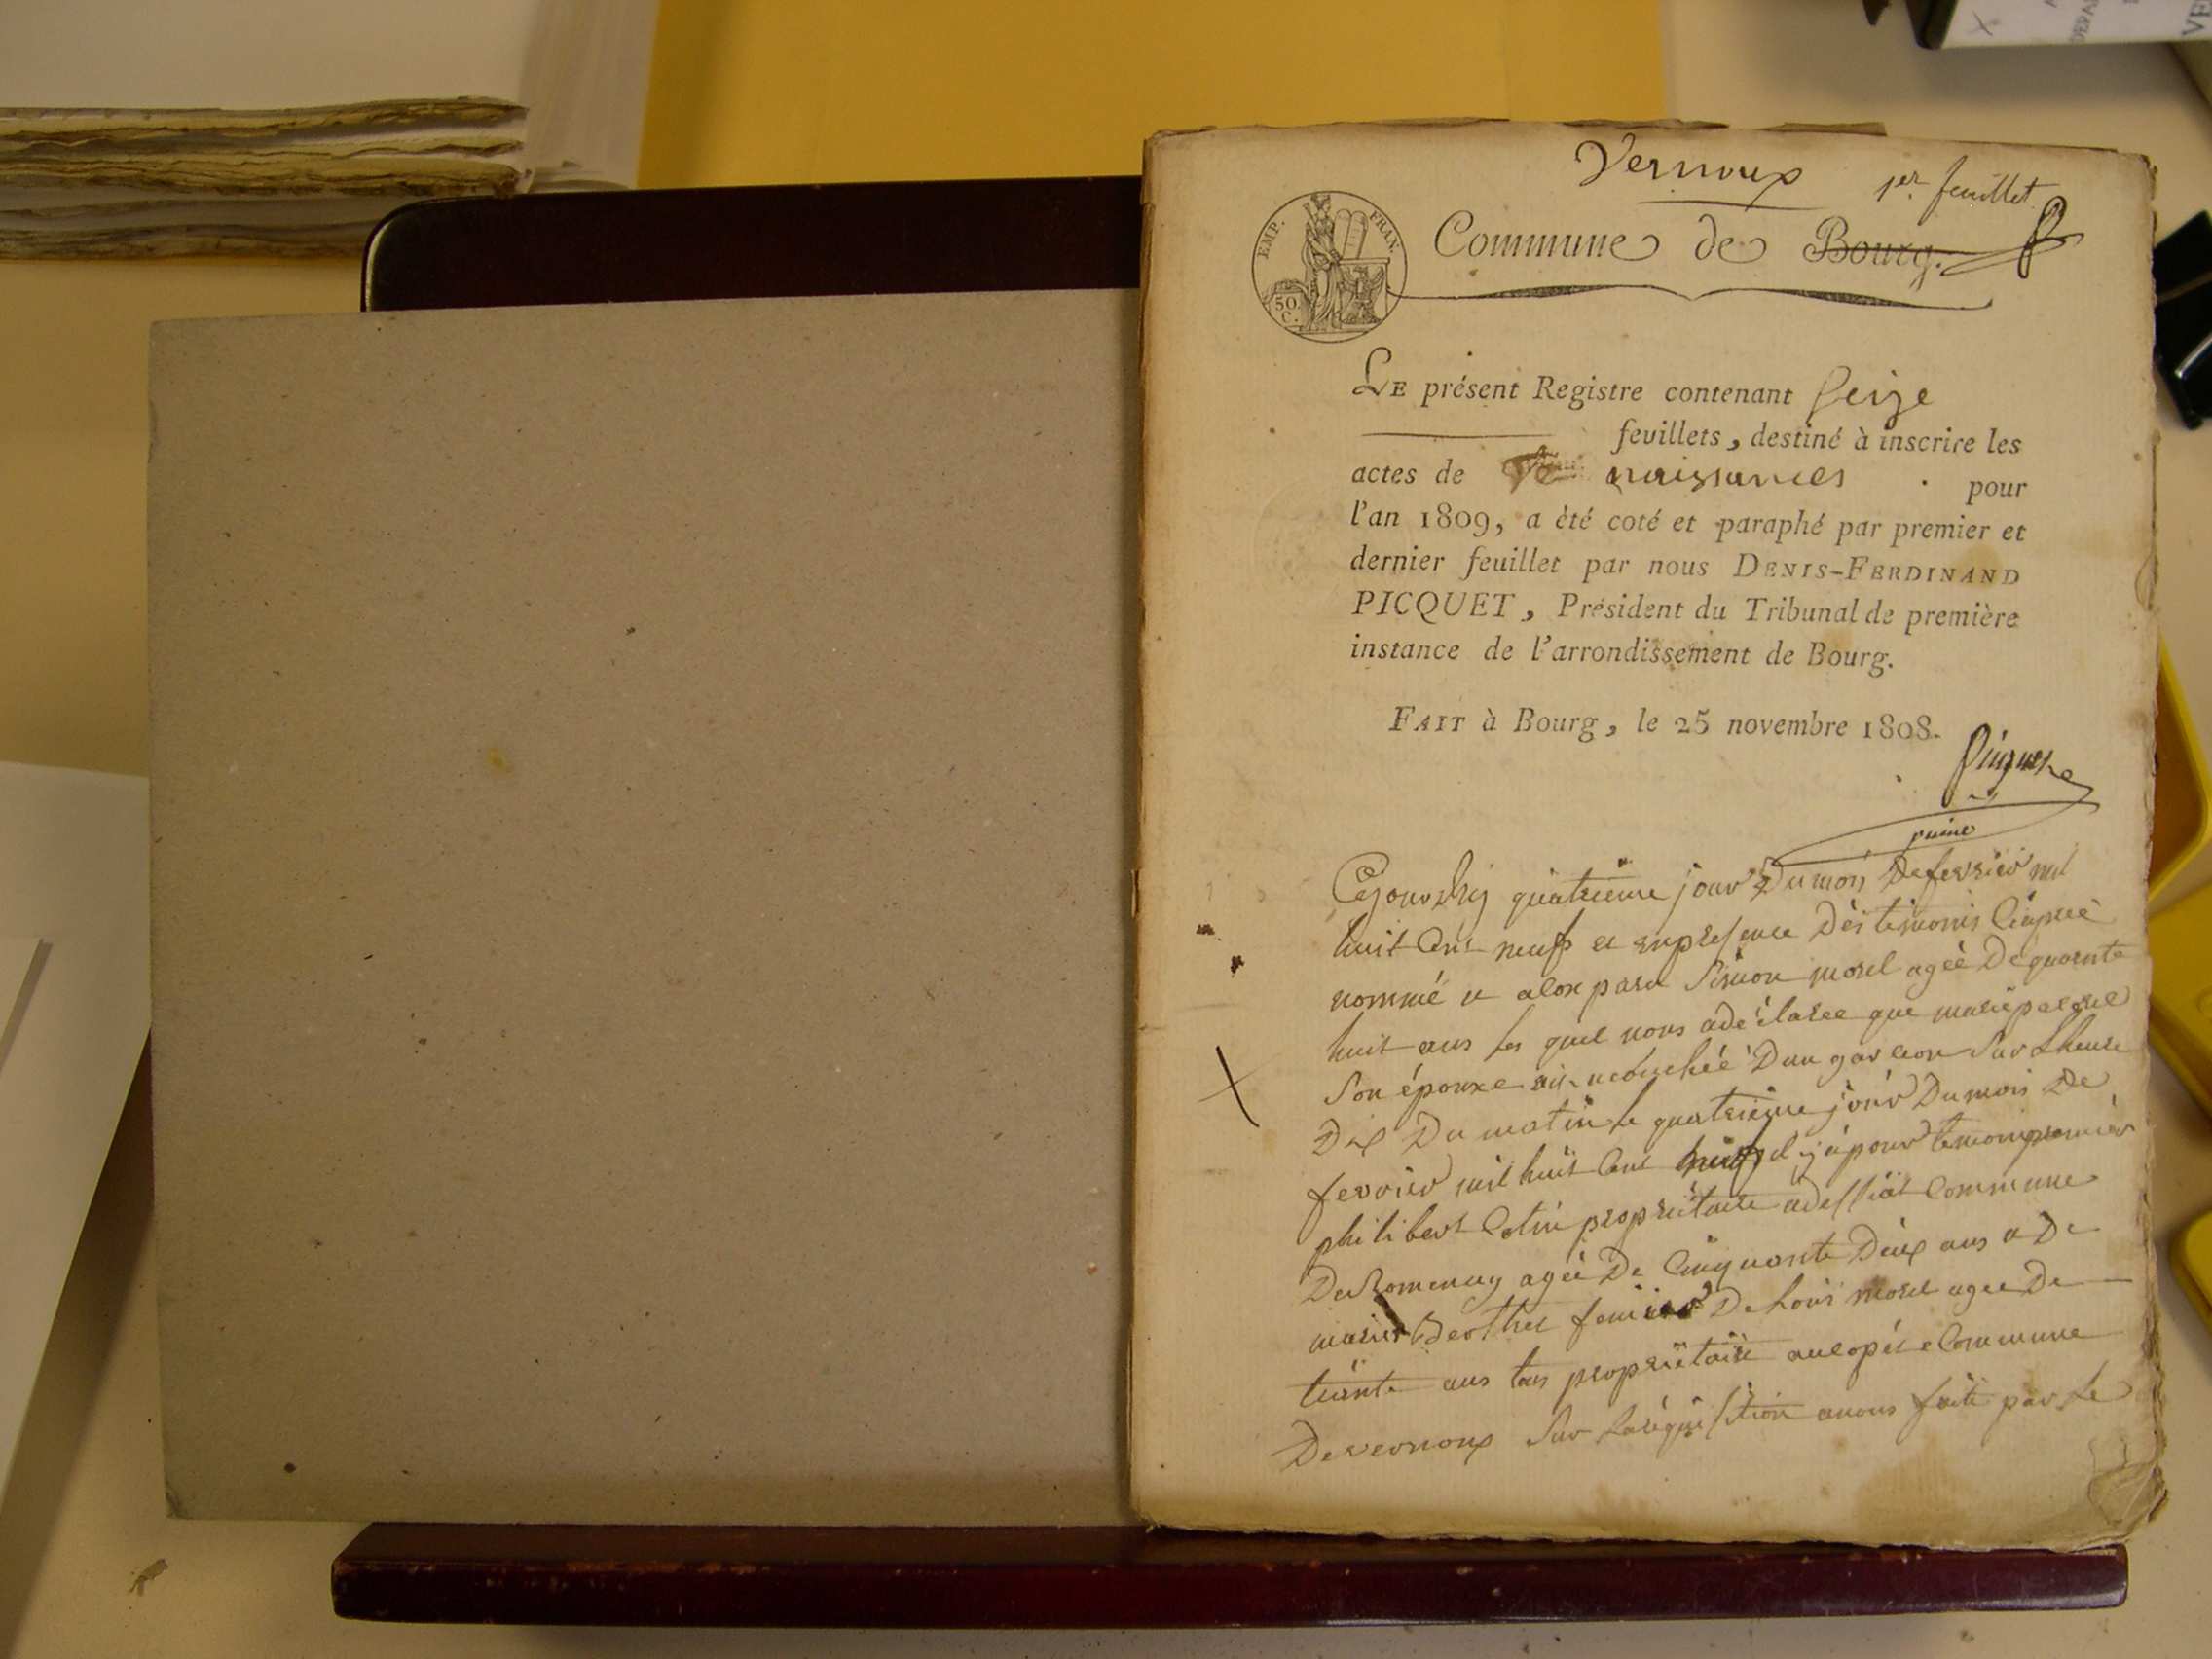 Vernoux
1er feuillet
EMP. FRAN.
50 C.
Commune de Bourg.
LE présent Registre contenant Seize
feuillets, destiné à inscrire les
actes de naissances pour
l'an 1809, a été coté et paraphé par premier et
dernier feuillet par nous DENIS-FERDINAND
PICQUET, Président du Tribunal de première
instance de l'arrondissement de Bourg.
FAIT à Bourg, le 25 novembre 1808.
Picquet
Cejourdhuy quatrieme jour Du mois De fevrier mil
huit Cent neuf et en presence Des temoins
nommé Simon morel ageé De quarente
huit ans le quel nous a declaree que marie
Son épouxe acouchée Dun garcon Sur Lheure
Dix Du matin le quatrieme jour Du mois De
fevrier mil huit Cent pour temoin premier
philibert Colin propriétaire Commune
De Romenay ageé De Cinquante Deux ans
De Louis morel agee De
trente ans propriétaire Commune
De vernoux Sur La réquisition a nous faite par Le